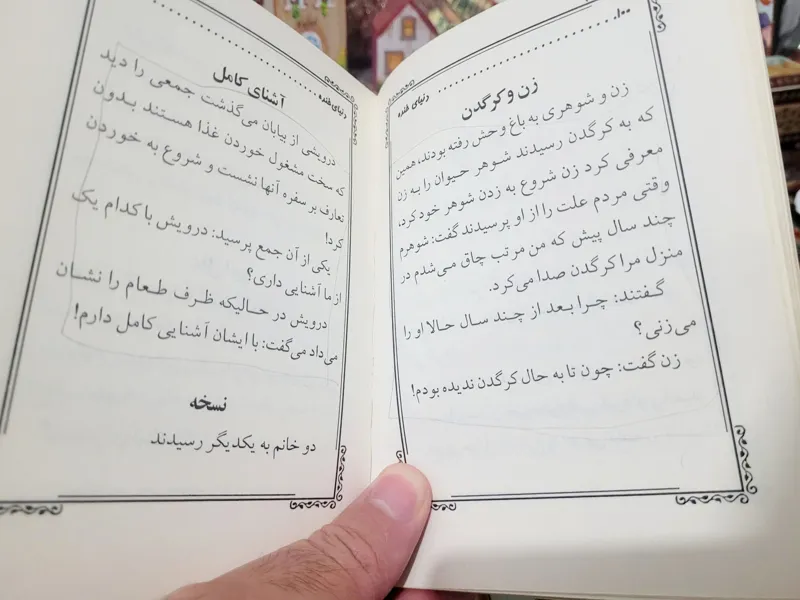 ۱۰۰ دنیای خنده
زن و کرگدن
زن و شوهری به باغ وحش رفته بودند، همین
که به کرگدن رسیدند شوهر حیوان را به زن
معرفی کرد زن شروع به زدن شوهر خود کرد،
وقتی مردم علت را از او پرسیدند گفت: شوهرم
چند سال پیش که من مرتب چاق می‌شدم در
منزل مرا کرگدن صدا می‌کرد.
گفتند: چرا بعد از چند سال حالا او را
می‌زنی؟
زن گفت: چون تا به حال کرگدن ندیده بودم!
دنیای خنده
آشنای کامل
درویشی از بیابان می‌گذشت جمعی را دید
که سخت مشغول خوردن غذا هستند بدون
تعارف بر سفره آنها نشست و شروع به خوردن
کرد!
یکی از آن جمع پرسید: درویش با کدام یک
از ما آشنایی داری؟
درویش در حالیکه ظرف طعام را نشان
می‌داد می‌گفت: با ایشان آشنایی کامل دارم!
نسخه
دو خانم به یکدیگر رسیدند